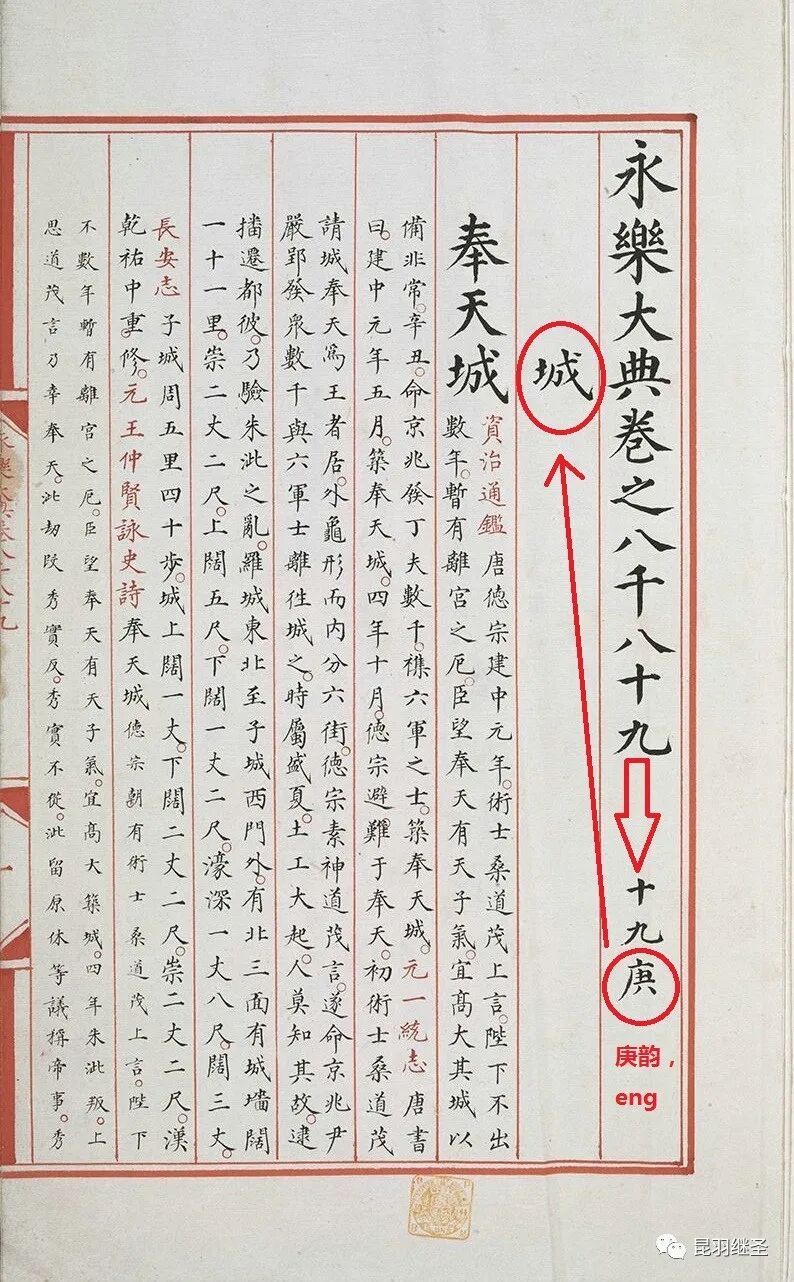 永樂大典卷之八千八十九 十九庚
城
奉天城
資治通鑑唐德宗建中元年。術士桑道茂上言。陛下不出
數年。暫有離宫之厄。臣望奉天有天子氣。宜髙大其城以
備非常。辛丑。命京兆發丁夫數千。襍六軍之士。築奉天城。元一統志唐書
曰。建中元年五月。築奉天城。四年十月。德宗避難于奉天。初術士桑道茂
請城奉天爲王者居。外龜形而内分六街。德宗素神道茂言。遂命京兆尹
嚴郢發衆數千與六軍士離徃城之。時屬盛夏。土工大起。人莫知其故。逮
播遷都彼。乃驗朱泚之亂。羅城東北至子城西門外。有北三面有城墻闊
一十一里。崇二丈二尺。上闊五尺。下闊一丈二尺。濠深一丈八尺。闊三丈。
長安志子城周五里四十步。城上闊一丈。下闊二丈二尺。崇二丈二尺。漢
乾祐中重修。元王仲賢詠史詩奉天城德宗朝有術士桑道茂上言。陛下
不數年暫有離宫之厄。臣望奉天有天子氣。宜髙大築城。四年朱泚叛。上
思道茂言乃幸奉天。泚劫段秀實反。秀實不從。泚留原休等議稱帝事。秀
庚韵，
eng
昆羽继圣